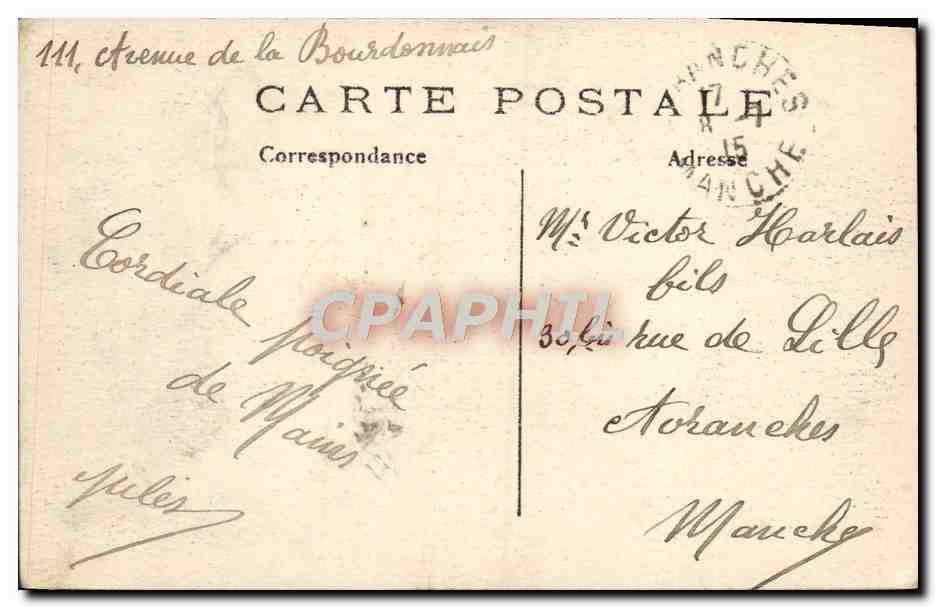 111, Avenue de la Bourdonnais
CARTE POSTALE
Correspondance
Adresse
AVRANCHES
7 - 1
15
MANCHE
Cordiale
poignée
de Mains
Jules
Mr Victor Harlais
fils
30 bis rue de Lille
Avranches
Manche
CPAPHIL